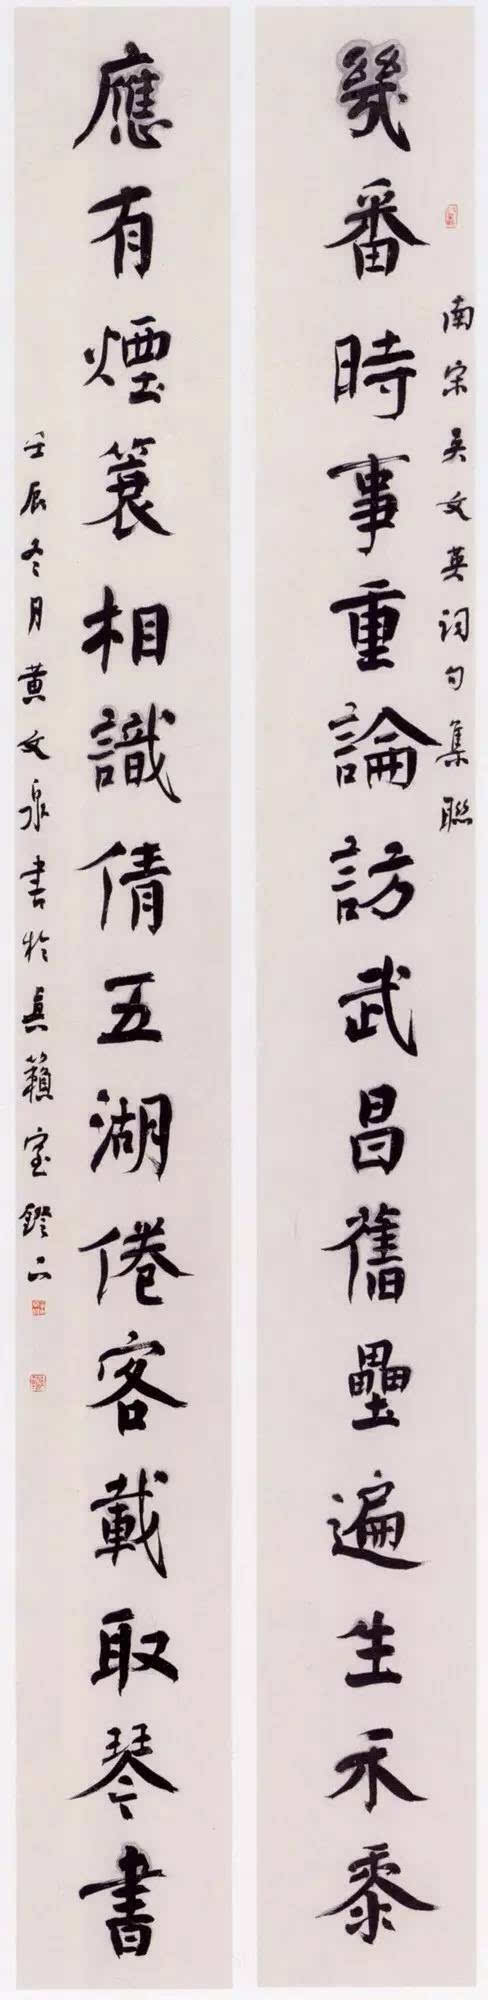 南宋吳文英詞句集聯
幾番時事重論訪武昌舊壘遍生禾黍
應有煙簑相識倩五湖倦客載取琴書
壬辰冬月黃文泉書於真籟室鐙下